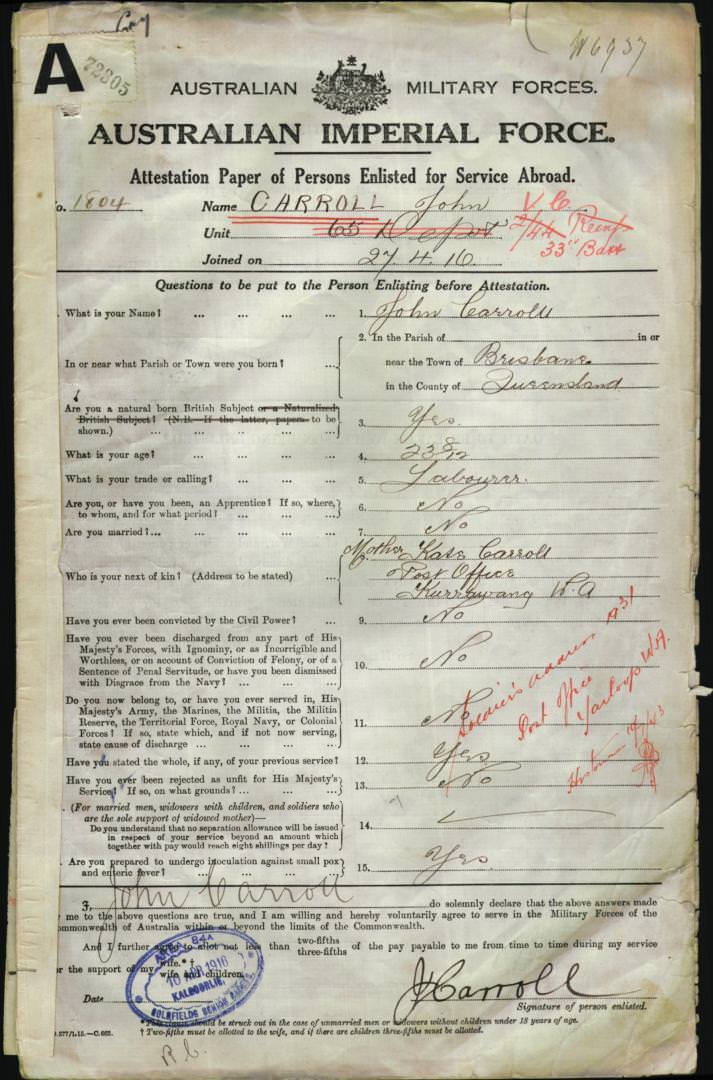 Copy
A 72805
W6937
AUSTRALIAN MILITARY FORCES.
AUSTRALIAN IMPERIAL FORCE.
Attestation Paper of Persons Enlisted for Service Abroad.
o. 1804 Name CARROLL John V.C.
Unit 65 Depot 2/44 Reinf
33rd Batt
Joined on 27.4.16
Questions to be put to the Person Enlisting before Attestation.
. What is your Name? ... ... ... ... 1. John Carroll
In or near what Parish or Town were you born? ... 2. In the Parish of in or
near the Town of Brisbane
in the County of Queensland
Are you a natural born British Subject or a Naturalized
British Subject? (N.B. If the latter, papers to be
shown.) ... ... ... ... ... 3. Yes.
What is your age? ... ... ... ... 4. 23 8/12
What is your trade or calling? ... ... ... 5. Labourer.
Are you, or have you been, an Apprentice? If so, where,
to whom, and for what period? ... ... ... 6. No
Are you married?... ... ... ... ... 7. No
Who is your next of kin? (Address to be stated) ... Mother Kate Carroll
Post Office
Kurrawang W.A
Have you ever been convicted by the Civil Power? ... 9. No
Have you ever been discharged from any part of His
Majesty's Forces, with Ignominy, or as Incorrigible and
Worthless, or on account of Conviction of Felony, or of a
Sentence of Penal Servitude, or have you been dismissed
with Disgrace from the Navy? ... ... ... 10. No
Do you now belong to, or have you ever served in, His
Majesty's Army, the Marines, the Militia, the Militia
Reserve, the Territorial Force, Royal Navy, or Colonial
Forces? If so, state which, and if not now serving,
state cause of discharge ... ... ... ... 11. No
Soldier's address A31
Post Office
Yarloop W.A.
Have you stated the whole, if any, of your previous service? 12. Yes
Have you ever been rejected as unfit for His Majesty's
Service? If so, on what grounds? ... ... ... 13. No
. (For married men, widowers with children, and soldiers who
are the sole support of widowed mother)—
Do you understand that no separation allowance will be issued
in respect of your service beyond an amount which
together with pay would reach eight shillings per day? 14.
. Are you prepared to undergo inoculation against small pox
and enteric fever? ... ... ... ... 15. Yes.
I, John Carroll do solemnly declare that the above answers made
me to the above questions are true, and I am willing and hereby voluntarily agree to serve in the Military Forces of the
ommonwealth of Australia within or beyond the limits of the Commonwealth.
And I further agree to allot not less than two-fifths three-fifths of the pay payable to me from time to time during my service
r the support of my wife.*† wife and children.
AREA 84A
10 APR 1916
KALGOORLIE,
Date J Carroll
Signature of person enlisted.
* This clause should be struck out in the case of unmarried men or widowers without children under 18 years of age.
† Two-fifths must be allotted to the wife, and if there are children three-fifths must be allotted.
.577/1.15.—C.662.
R.C.